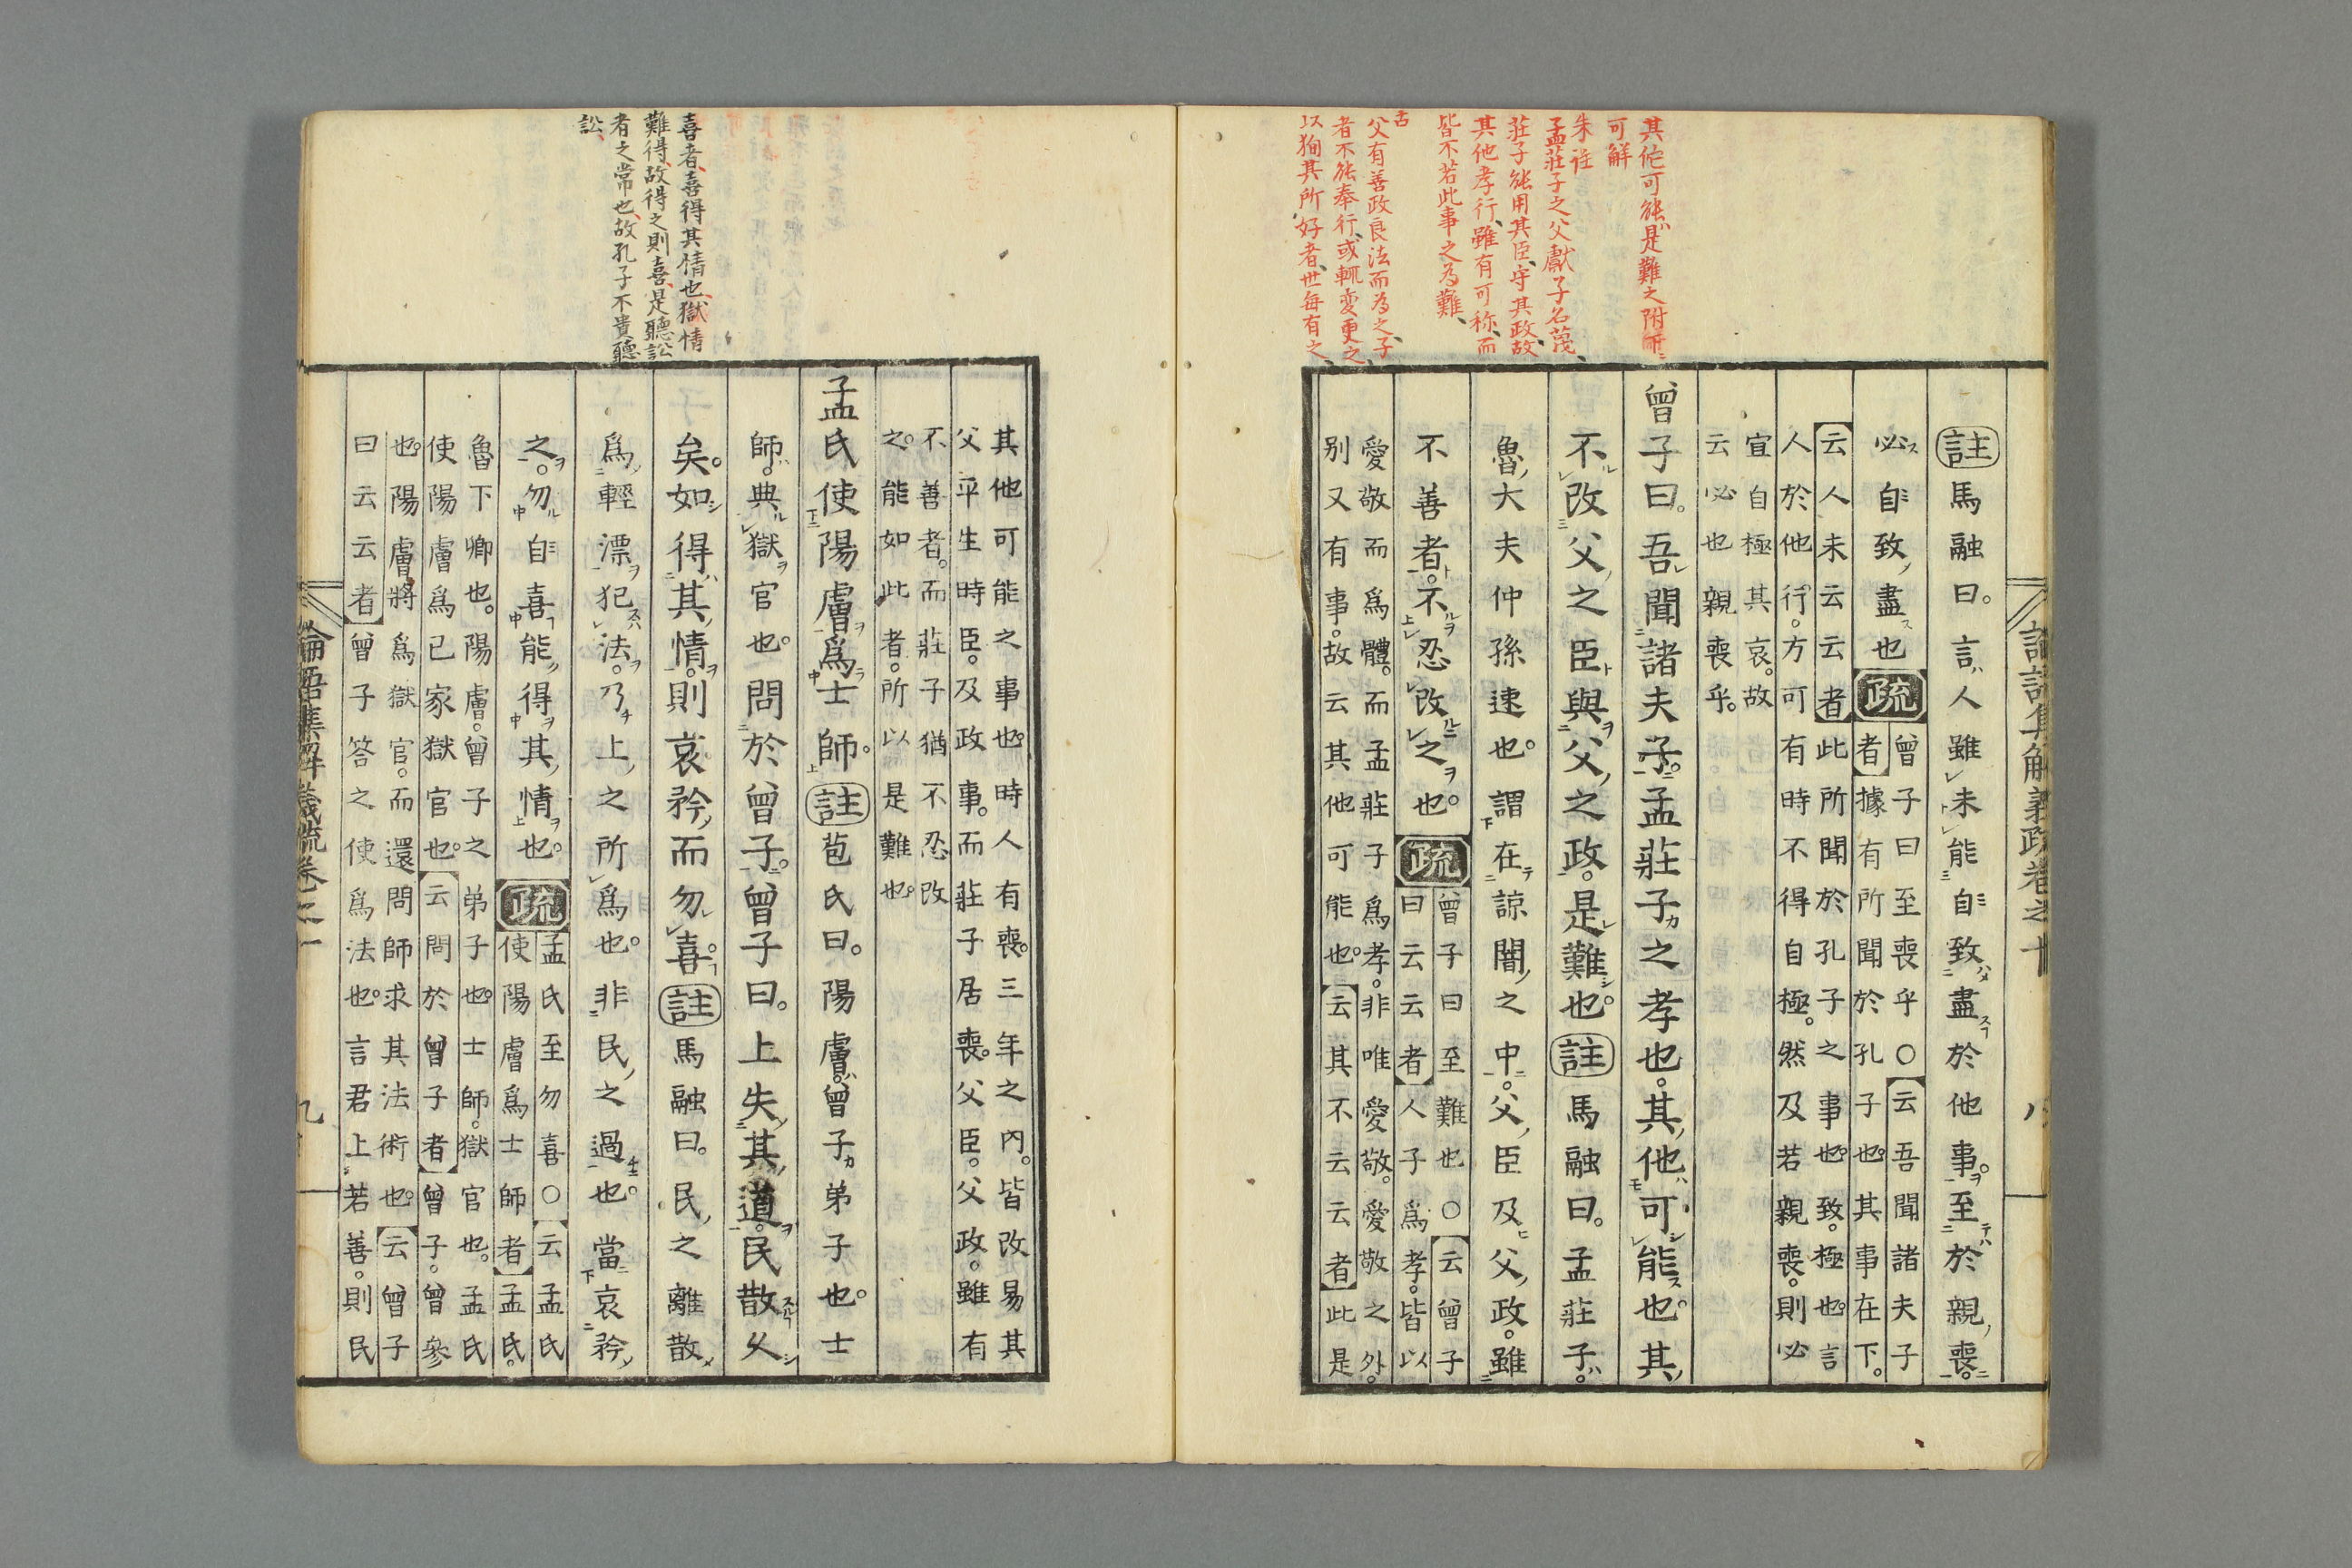 其佗可能是難之附
可解
朱註
孟莊子之父獻子名蔑
莊子能用其臣守其政故
其他孝行雖有可称而
皆不若此事之為難
古
父有善政良法而為之子
者不能奉行或輒変更之
以狥其所好者世毎有之
論語集解義疏卷之十 八
註馬融曰。言人雖未能自致盡於他事。至於親喪。
必自致盡也疏
曾子曰至喪乎○云吾聞諸夫子
者據有所聞於孔子也。其事在下。
云人未云云者此所聞於孔子之事也。致。極也。言
人於他行。方可有時不得自極。然及若親喪。則必
宜自極其哀。故
云必也親喪乎。
曾子曰。吾聞諸夫子。孟莊子之孝也。其他可能也。其
不改父之臣與父之政。是難也。註馬融曰。孟莊子。
魯大夫仲孫速也。謂在諒闇之中。父臣及父政。雖
不善者。不忍改之也。疏
曾子曰至難也○云曾子
曰云云者人子爲孝。皆以
愛敬而爲體。而孟莊子爲孝。非唯愛敬。愛敬之外。
別又有事。故云其他可能也。云其不云云者此是
其他可能之事也。時人有喪。三年之內。皆改易其
父平生時臣。及政事。而莊子居喪。父臣。父政。雖有
不善者。而莊子猶不忍改
之。能如此者。所以是難也。
孟氏使陽膚爲士師。註苞氏曰。陽膚。曾子弟子也。士
師。典獄官也。問於曾子。曾子曰。上失其道。民散久
矣。如得其情。則哀矜而勿喜。註馬融曰。民之離散
爲輕漂犯法。乃上之所爲也。非民之過也。當哀矜
之。勿自喜能得其情也。疏
孟氏至勿喜○云孟氏
使陽膚爲士師者孟氏。
魯下卿也。陽膚。曾子之弟子也。士師。獄官也。孟氏
使陽膚爲己家獄官也。云問於曾子者曾子。曾參
也。陽膚將爲獄官。而還問師求其法術也。云曾子
曰云云者曾子答之使爲法也。言君上若善。則民
論語集解義疏卷之十 九
喜者喜得其情也獄情
難得故得之則喜是聽訟
者之常也故孔子不貴聽
訟